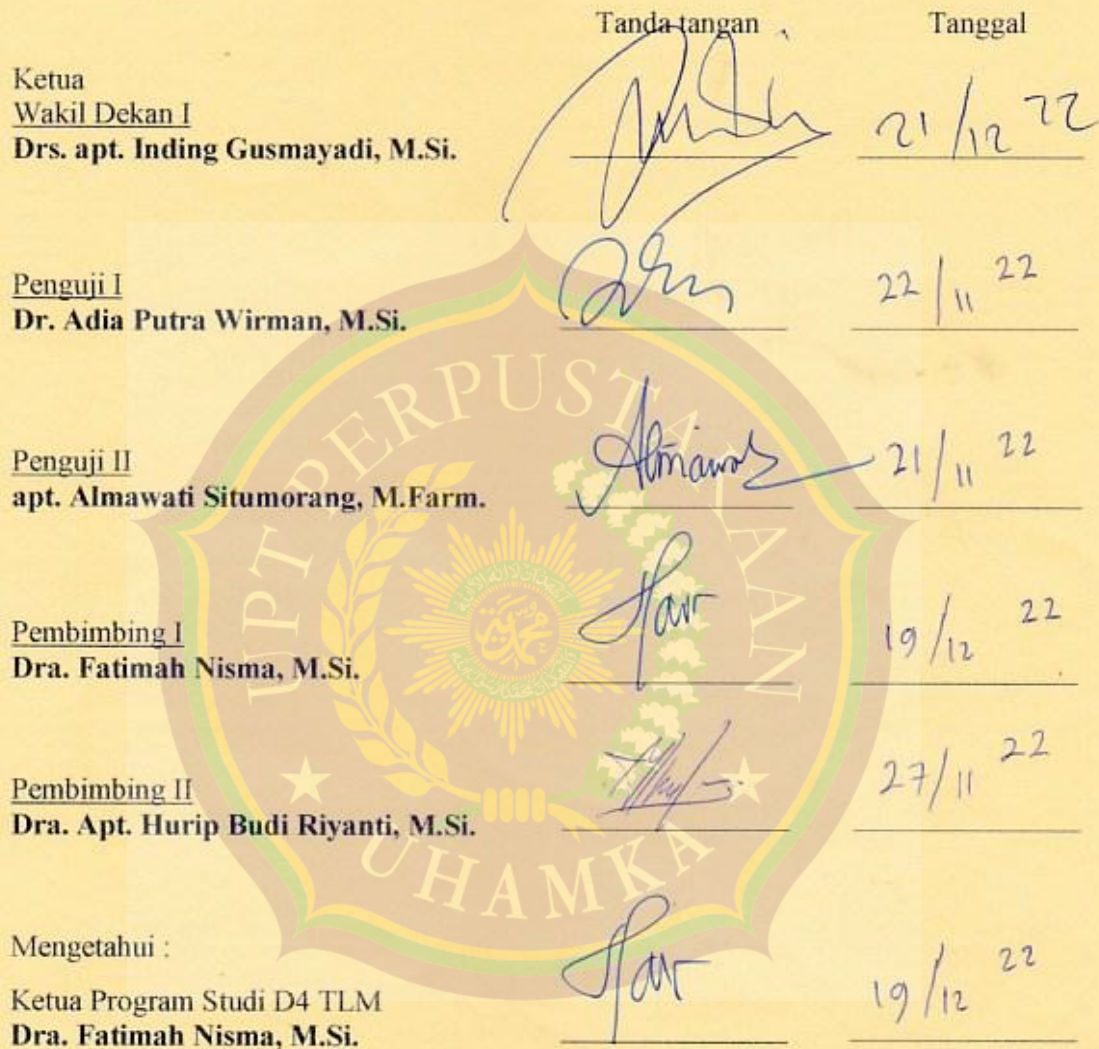 Tanda tangan Tanggal
Ketua
Wakil Dekan I
Drs. apt. Inding Gusmayadi, M.Si.
21/12 22
Penguji I
Dr. Adia Putra Wirman, M.Si.
22/11 22
Penguji II
apt. Almawati Situmorang, M.Farm.
Almawati
21/11 22
Pembimbing I
Dra. Fatimah Nisma, M.Si.
19/12 22
Pembimbing II
Dra. Apt. Hurip Budi Riyanti, M.Si.
27/11 22
Mengetahui :
Ketua Program Studi D4 TLM
Dra. Fatimah Nisma, M.Si.
19/12 22
UPT PERPUSTAKAAN
UHAMKA